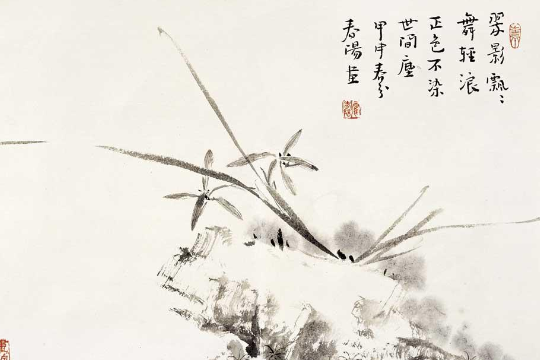 翠影飄〻
舞輕浪
正色不染
世間塵
甲申春分
春陽畫